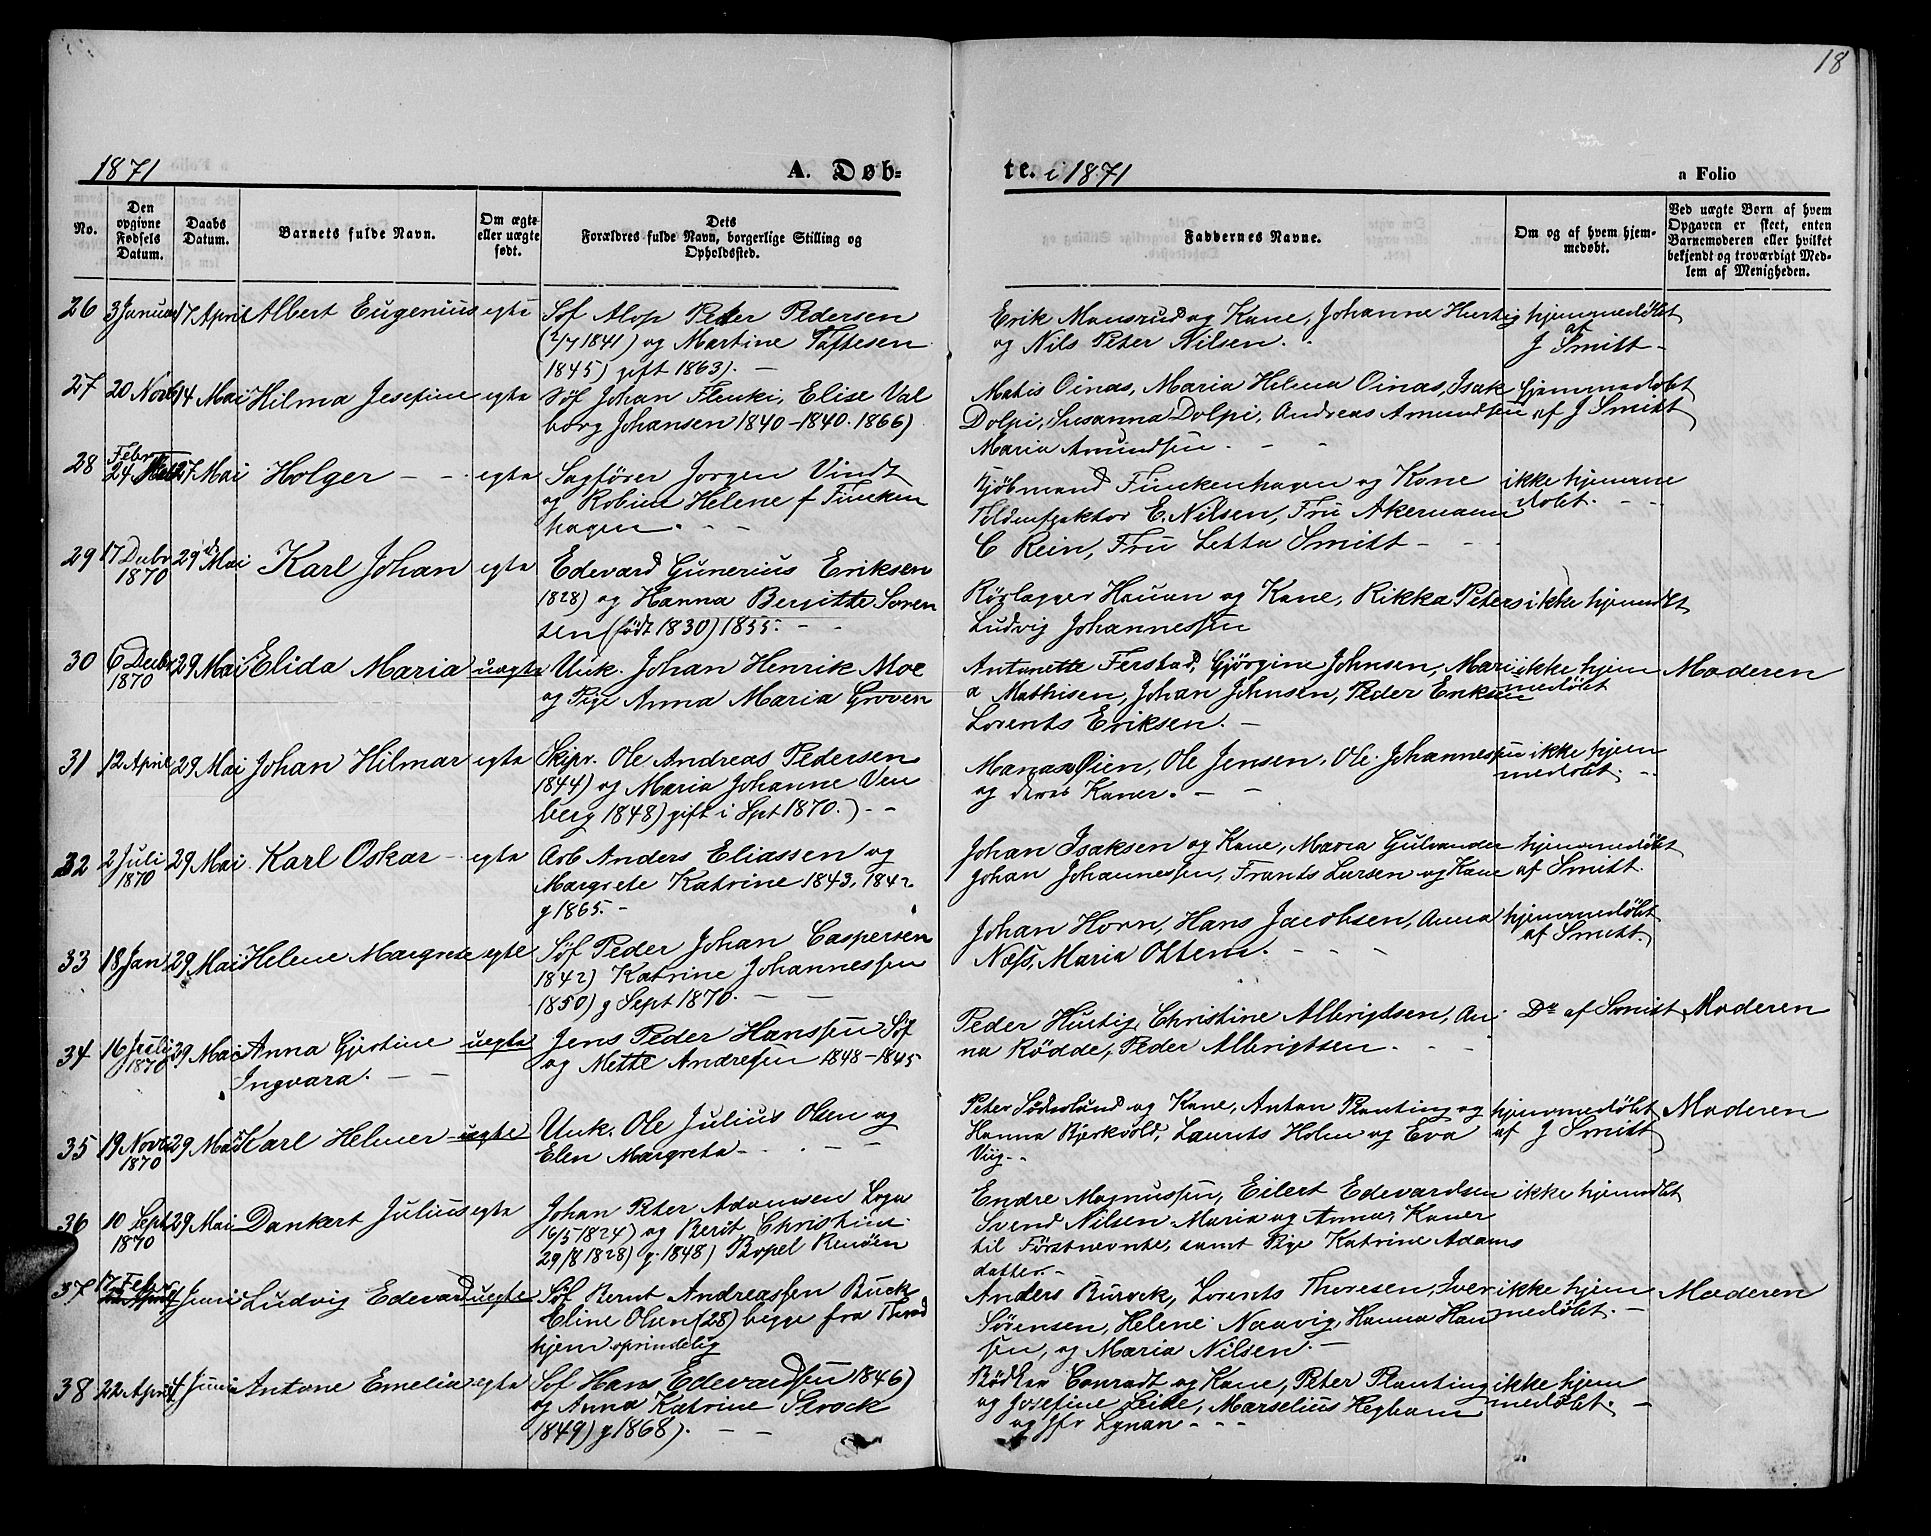 18
1871
A. Døb-
te. i 1871
a Folio
No.
Den opgivne Fødsels Datum.
Daabs Datum.
Barnets fulde Navn.
Om ægte eller uægte født.
Dets Forældres fulde Navn, borgerlige Stilling og Opholdssted.
Faddernes Navne.
Om og af hvem hjemmedøbt.
Ved uægte Børn af hvem Opgaven er skeet, enten Barnemoderen eller hvilket bekjendt og troværdigt Medlem af Menigheden.
26 3 Januar 17 April Albert Eugenius egte Søf Alop Peter Pedersen
(2/7 1841) og Martine Toftesen
1845) gift 1863). -
Erik Monsrud og Kone, Johanne Hurtig
og Nils Peter Nilsen.
hjemmedøbt
af
J Smitt -
27 20 Novb 14 Mai Hilma Josefine egte Søf Johan Flenki, Elise Val
borg Johansen 1840 - 1840. 1866)
Matis Oinas, Maria Helena Oinas, Isak
Dolpi, Susanna Dolpi, Andreas Amundsen
Maria Amundsen. - -
hjemmedøbt
af J Smitt
28 Febr
24 27 Mai Holger - - egte Sagfører Jørgen Vindt
og Robine Helene f Fincken
hagen. - -
Kjøbmand Finckenhagen og Kone
Toldinspektor E. Nilsen, Fru Akermann
C Rein, Fru Letta Smitt - - -
ikke hjemme
døbt. - -
29 17 Decbr
1870 29 Mai Karl Johan egte Edevard Gunerius Eriksen
1828) og Hanna Bergitte Soren
sen (født 1830) 1855. - -
Rørlegger Hauan og Kone, Rikka Peters
Ludvig Johannessen
ikke hjemdøbt
30 6 Decbr
1870 29 Mai Elida Maria uegte Unk. Johan Henrik Moe
og Pige Anna Maria Groven
Antonette Ferstad, Gjørgine Johnsen, Mari
a Mathisen, Johan Johnsen, Peder Eriksen
Lorents Eriksen. -
ikke hjem
medøbt
Moderen
31 12 April 29 Mai Johan Hilmar egte Skipr. Ole Andreas Pedersen
1844) og Maria Johanne Ven
berg 1848) gift i Spt 1870.) - -
Manas Øien, Ole Jensen, Ole Johannessen
og deres Koner. - -
ikke hjem
medøbt. -
32 2 Juli
1870 29 Mai Karl Oskar - egte Arb Anders Eliassen og
Margrete Katrine 1843, 1842
g 1865. -
Johan Isaksen og Kone, Maria Gulvander
Johan Johannessen, Frants Larsen og Kone
hjemmedøbt
af Smitt.
33 18 Jan 29 Mai Helene Margrete egte Søf Peder Johan Caspersen
1842) Katrine Johannessen
1850) g Sept 1870. - -
Johan Horn, Hans Jacobsen, Anna
Næss, Maria Ottem. - - -
hjemmedøbt
af Smitt.
34 16 Juli
1870 29 Mai Anna Gjertine
Ingvara. - - uegte Jens Peder Hanssen Søf
og Mette Andresen 1848 - 1845
Peder Hurtig, Christine Albrigtsen, An
na Rødde, Peder Albrigtsen. - -
Do af Smitt
Moderen
35 19 Novr
1870 29 Mai Karl Helmer - uegte Unk. Ole Julius Olsen og
Elen Margreta - - -
Peter Søderlund og Kone, Anton Planting og
Hanna Bjerkvold, Laurits Holm og Eva
Viig. -
hjemmedøbt
af J Smitt
Moderen
36 10 Sept
1870 29 Mai Dankert Julius egte Johan Peter Adamsen
16/5 1824) og Berit Christine
29/8 1828) g. 1848) Bopel Renøen
Endre Magnussen, Eilert Edevardsen
Svend Nilsen Maria og Anna, Koner
til Førstnevnte, samt Pige Katrine Adams
datter. -
ikke hjemdøbt
37 17 Febr
4 Juni Ludvig Edevard uegte Søf. Bernt Andreassen Buck
Eline Olsen (28) begge fra Trond
hjem oprindelig
Anders Burock, Lorents Thoresen, Iver
Sørensen, Helene Naavig, Hanna Han
sen, og Maria Nilsen. -
ikke hjem
medøbt. -
Moderen
38 22 April 4 Juni Antone Emelia egte Søf Hans Edevardsen 1846)
og Anna Katrine Strock
1849) g 1868). - -
Bødker Conradt og Kone, Peter Planting
og Josefine Leide, Marselius Hegbom
og Jfr Lynan - - -
ikke hjem
medøbt. -